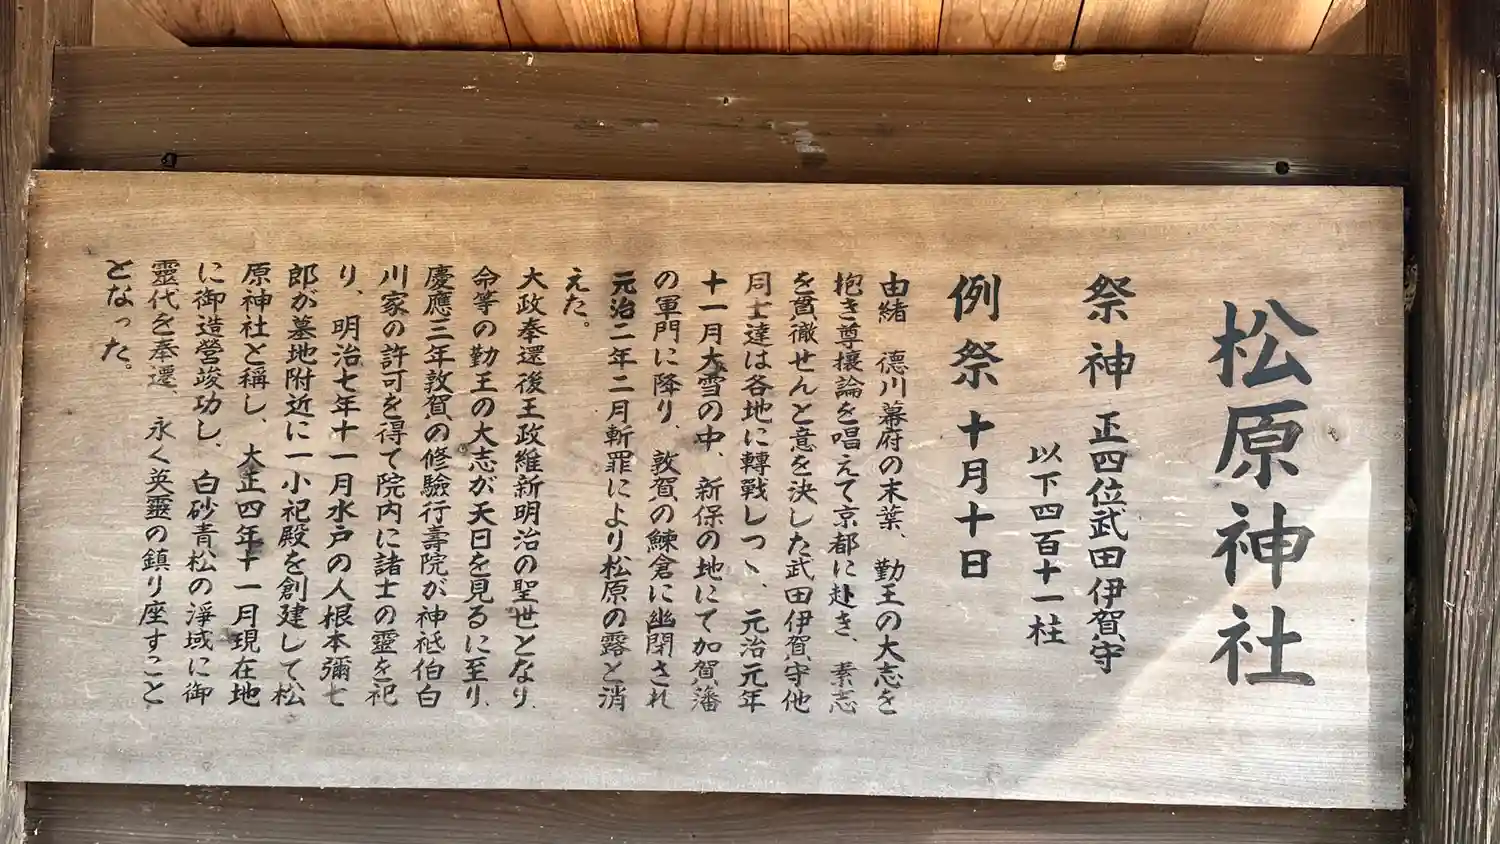 松原神社
祭神 正四位武田伊賀守
以下四百十一柱
例祭 十月十日
由緒 徳川幕府の末葉、勤王の大志を
抱き尊攘論を唱えて京都に赴き、素志
を貫徹せんと意を決した武田伊賀守他
同士達は各地に轉戦しつゝ、元治元年
十一月大雪の中、新保の地にて加賀藩
の軍門に降り、敦賀の鰊倉に幽閉され
元治二年二月斬罪により松原の露と消
えた。
大政奉還後王政維新明治の聖世となり
命等の勤王の大志が天日を見るに至り、
慶應三年敦賀の修驗行壽院が神祇伯白
川家の許可を得て院内に諸士の靈を祀
り、明治七年十一月水戸の人根本彌七
郎が墓地附近に一小祀殿を創建して松
原神社と稱し、大正四年十一月現在地
に御造營竣功し、白砂青松の淨域に御
靈代を奉遷、永く英靈の鎮り座すこと
となった。